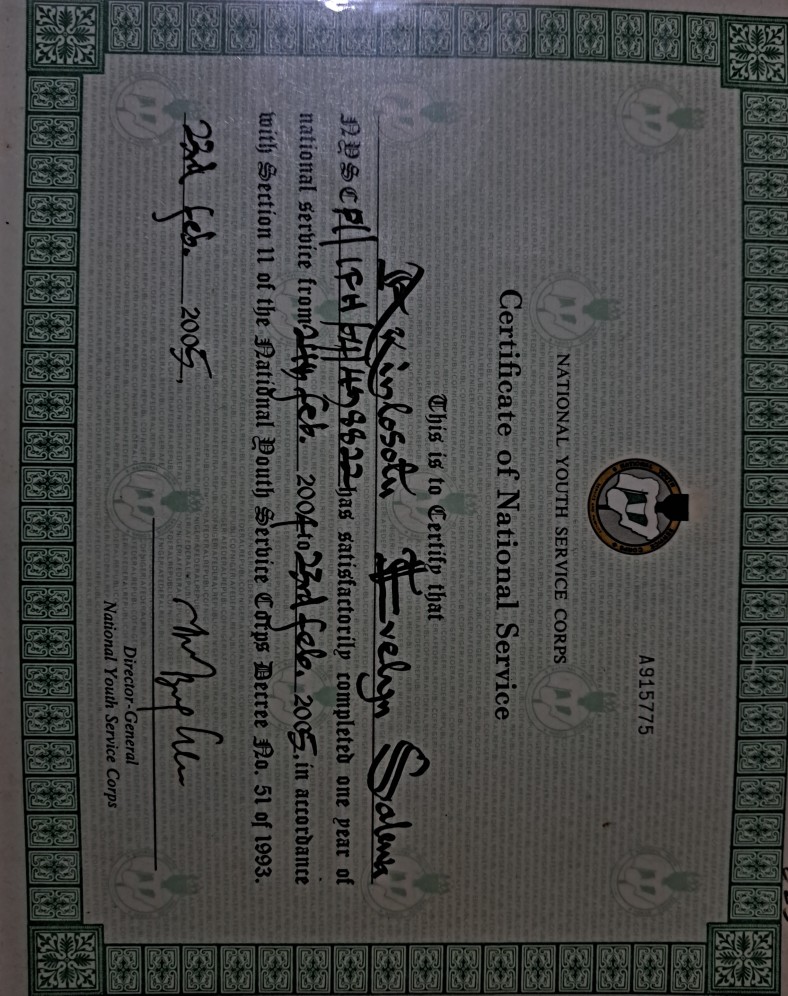 A915775
NATIONAL YOUTH SERVICE CORPS
Certificate of National Service
This is to Certify that
Evelyn Salewa
has satisfactorily completed one year of
national service from 24th Feb. 2004 to 23rd Feb. 2005, in accordance
with Section 11 of the National Youth Service Corps Decree No. 51 of 1993.
23rd Feb. 2005.
Director-General
National Youth Service Corps